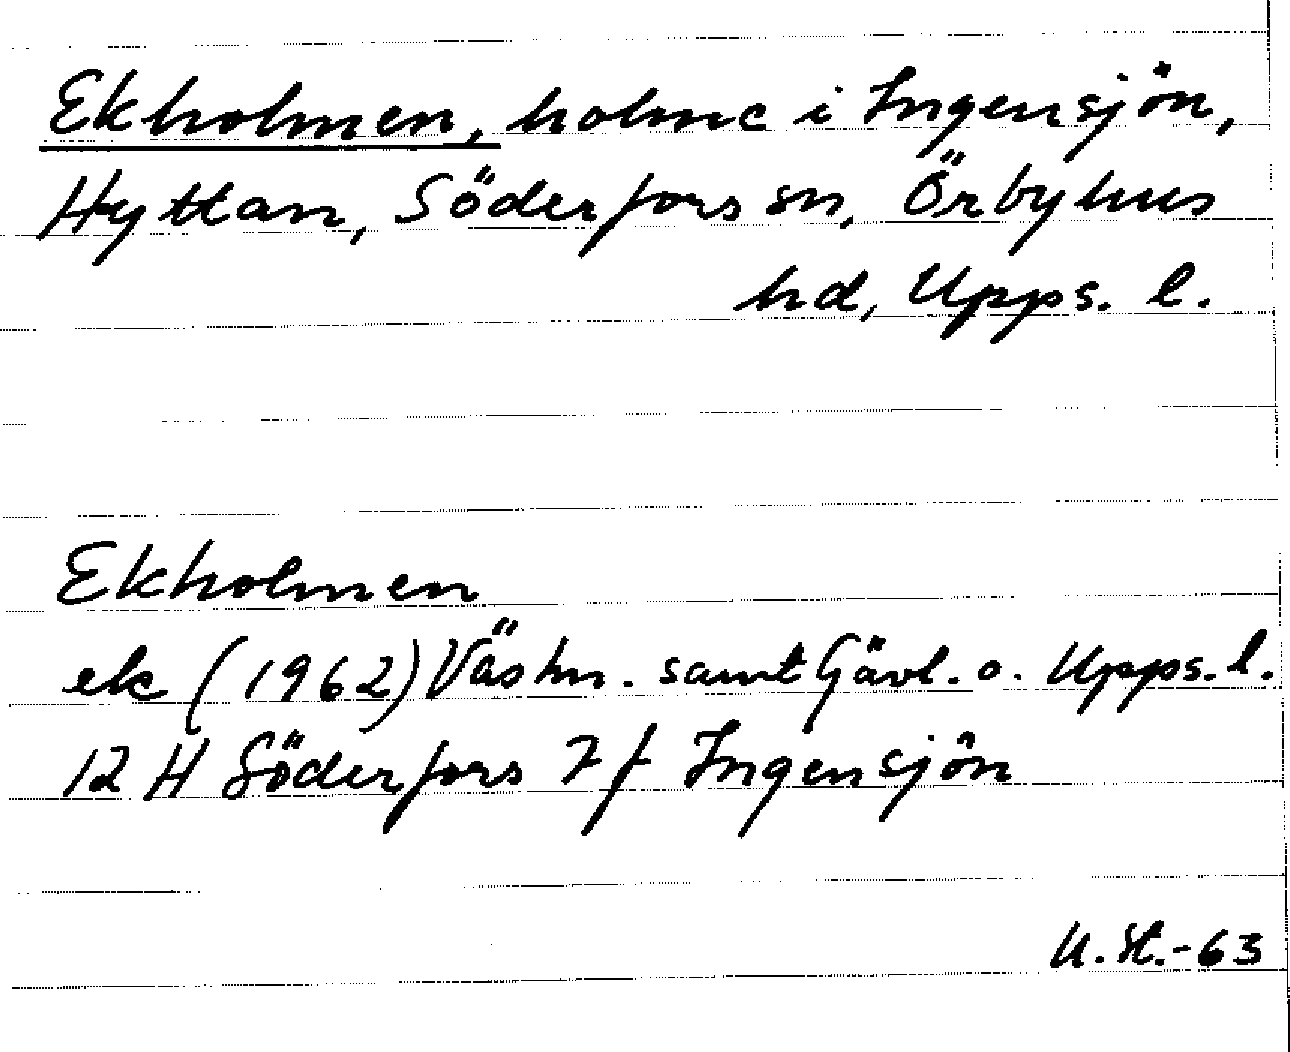 Ekholmen, holme i Ingensjön,
Hyttan, Söderfors sn, Örbyhus
hd, Upps. l.
Ekholmen
ek (1962) Västm. samt Gävl. o. Upps. l.
12 H Söderfors 7 f Ingensjön
U.St.-63